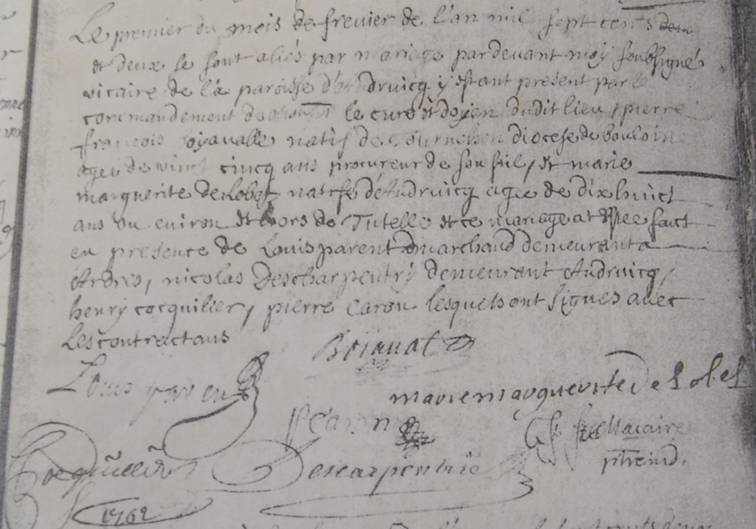 Le premier du mois de frevier de l'an mil sept cents
et deux se sont aliés par mariage pardevant moy soubsigné
vicaire de la paroisse d'Audruicq y estant present par le
commandement de le curé et doyen dudit lieu, pierre
francois natif de diocese de boulo
agé de vingt cincq ans procureur de son fait, et marie
marguerite de Lobel natifve d'Audruicq agée de dix huict
ans ou environ et hors de Tutelle et ce mariage at esté faict
en presence de Louis parent marchand demeurant a
Ardres, nicolas Descharpentrÿ demeurant Audruicq,
henry cocquilier, pierre Caron lesquels ont signes avec
les contractans
Louis parent
mariemarguerite de Lobel
p caron
vicaire
Descarpentrie
1702